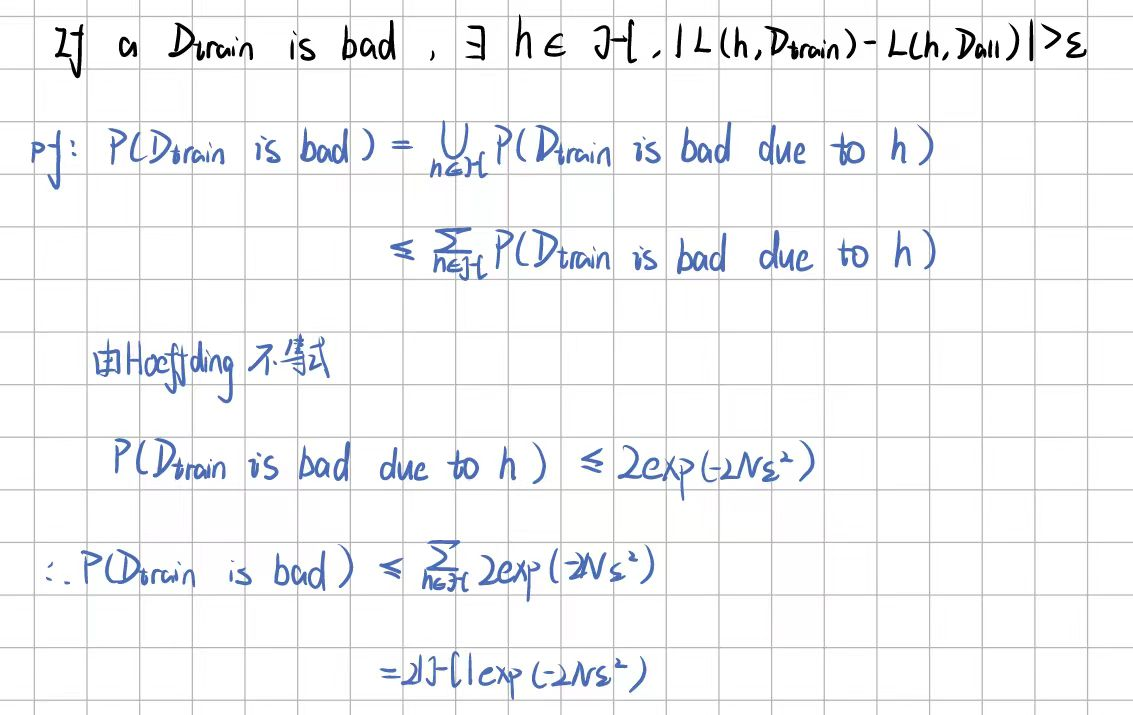 If a Dtrain is bad , ∃ h ∈ ℋ . |L(h, Dtrain) - L(h, Dall)| > ε
pf: P(Dtrain is bad) = ⋃_{h∈ℋ} P(Dtrain is bad due to h)
≤ Σ_{h∈ℋ} P(Dtrain is bad due to h)
由Hoeffding 不等式
P(Dtrain is bad due to h) ≤ 2exp(-2Nε²)
∴ P(Dtrain is bad) ≤ Σ_{h∈ℋ} 2exp(-2Nε²)
= 2|ℋ|exp(-2Nε²)